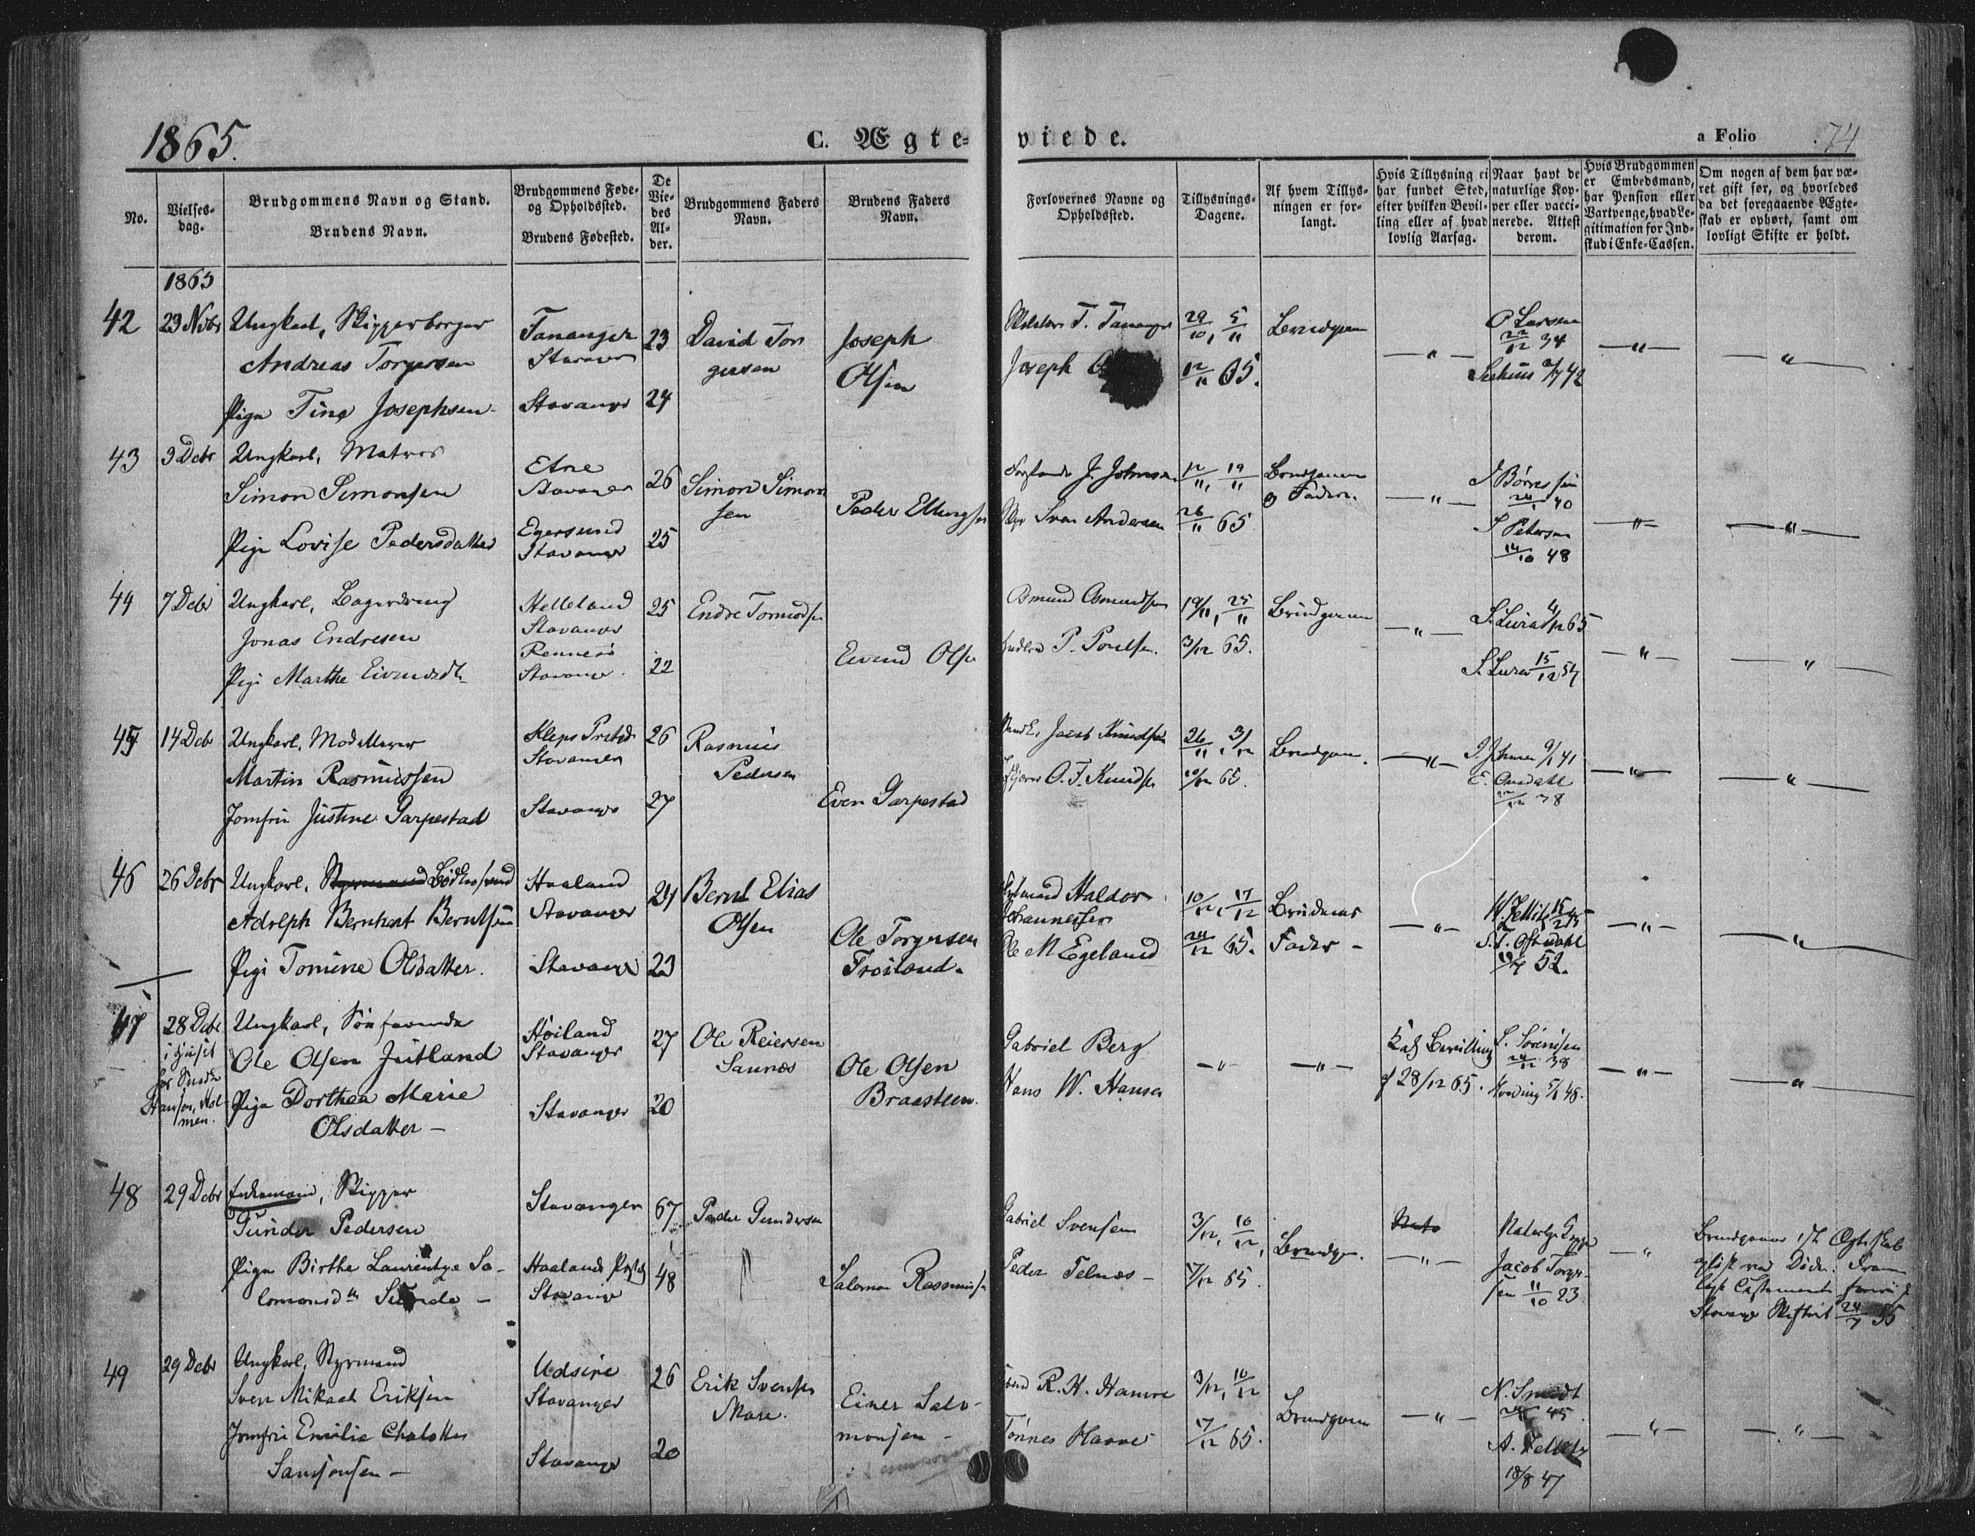 1865.
C. Ægte-
viede.
a Folio
74
No.
Vielses-
dag.
Brudgommens Navn og Stand.
Brudens Navn.
Brudgommens Føde-
og Opholdssted.
Brudens Fødested.
De
Vie-
des
Al-
der.
Brudgommens Faders
Navn.
Brudens Faders
Navn.
Forlovernes Navne og
Opholdssted.
Tillysnings-
Dagene.
Af hvem Tillys-
ningen er for-
langt.
Hvis Tillysning ei
har fundet Sted,
efter hvilken Bevil-
ling eller af hvad
lovlig Aarsag.
Naar havt de
naturlige Kop-
per eller vacci-
nerede. Attest
derom.
Hvis Brudgommen
er Embedsmand,
har Pension eller
Vartpenge, hvad Le-
gitimation for Ind-
skud i Enke-Cassen.
Om nogen af dem har væ-
ret gift før, og hvorledes
da det foregaaende Ægte-
skab er ophørt, samt om
lovligt Skifte er holdt.
1865
42 23 Nvbr Ungkarl, Skipperborger
Andreas Torgersen
Pige Tine Josephsen
Tananger
Stavanger
Stavanger
23
24
David Tor
gersen
Joseph
Olsen
T. Tananger
Joseph
29/10, 5/11
12/11 65.
Brudgom
P Larsen
22/12 34
42
43 3 Dcbr Ungkarl, Matros
Simon Simonsen
Pige Lovise Pedersdatter
Etne
Stavanger
Egersund
Stavanger
26
25
Simon Simon
sen
Peder Ellingsen
J. Johnsen
Sven Andersen
12/11, 19/11
26/11 65
Brudgommen
og Faderen.
J Børresen
40
S Petersen
14/10 48
44 7 Dcbr Ungkarl, Bagersvend
Jonas Endresen
Pige Marthe Eivindsdtr
Helleland
Stavanger
Rennesø
Stavanger.
25
22
Endre Tormodsen
Eivind Olsen
Osmund Osmundsen
P. Poulsen.
19/11, 25/11
3/12 65.
Brudgommen
65
15/12 54
45 14 Dcbr Ungkarl,
Martin Rasmussen
Jomfru Justine Garpestad
Kleps Prstgd
Stavanger
Stavanger
26
27
Rasmus
Pedersen
Even Garpestad
Jacob Knudsen
O. T. Knudsen
26/11, 3/12
10/12 65.
Brudgom.
41
E. Omdahl
38
46 26 Dcbr Ungkarl, Styrmand Bødkersvend
Adolph Bernhart Berntsen
Pige Tomine Olsdatter.
Haaland
Stavanger
Stavanger
24
23
Bernt Elias
Olsen
Ole Torgersen
Frøiland.
Styrmand Haldor
Johannesen
Ole M Egeland
10/12, 17/12
24/12 65.
Brudens
Fader
15/2 45
52.
47 28 Dcbr
i Huset
Hansen, Hol-
men.
Ungkarl, Søefarende
Ole Olsen Jutland
Pige Dorthea Marie
Olsdatter
Høiland
Stavanger
Stavanger
27
20
Ole Reiersen
Sannæs
Ole Olsen
Braasteen.
Gabriel Berg
Hans W. Hansen
Bevilling
af 28/12 65.
S. Sørensen
24/12 38
48.
48 29 Dcbr Enkemand, Skipper
Gunder Pedersen
Pige Birthe Laurentze Sa-
lomonsdtr Sunde
Stavanger
Haalands Prstgd
Stavanger
67
48
Peder Gundersen
Salomon Rasmussen
Gabriel Svensen
Peder Telnæs
3/12, 10/12,
17/12 65.
Brudgom.
Naturlige Kopper
Jacob Torger-
sen 11/10 23
Brudgommens 1ste Ægteskab
opløst ved Døden. Frem
lagt Testament
Stavanger Skifteret 24/7 56
49 29 Dcbr Ungkarl, Styrmand
Sven Mikael Eriksen
Jomfru Emilie Chalotte
Samsonsen
Udsire
Stavanger
Stavanger
26
20
Erik Svensen
Mare.
Einer Salo-
monsen
R. H. Hamre
Tønnes Haave
3/12, 10/12
17/12 65.
Brudgom
N. Smidt
45.
A. Zetlitz
18/8 47